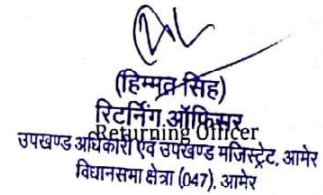 (हिम्मत सिंह)
रिटर्निंग ऑफिसर
Returning Officer
उपखण्ड अधिकारी एवं उपखण्ड मजिस्ट्रेट, आमेर
विधानसभा क्षेत्रा (047), आमेर